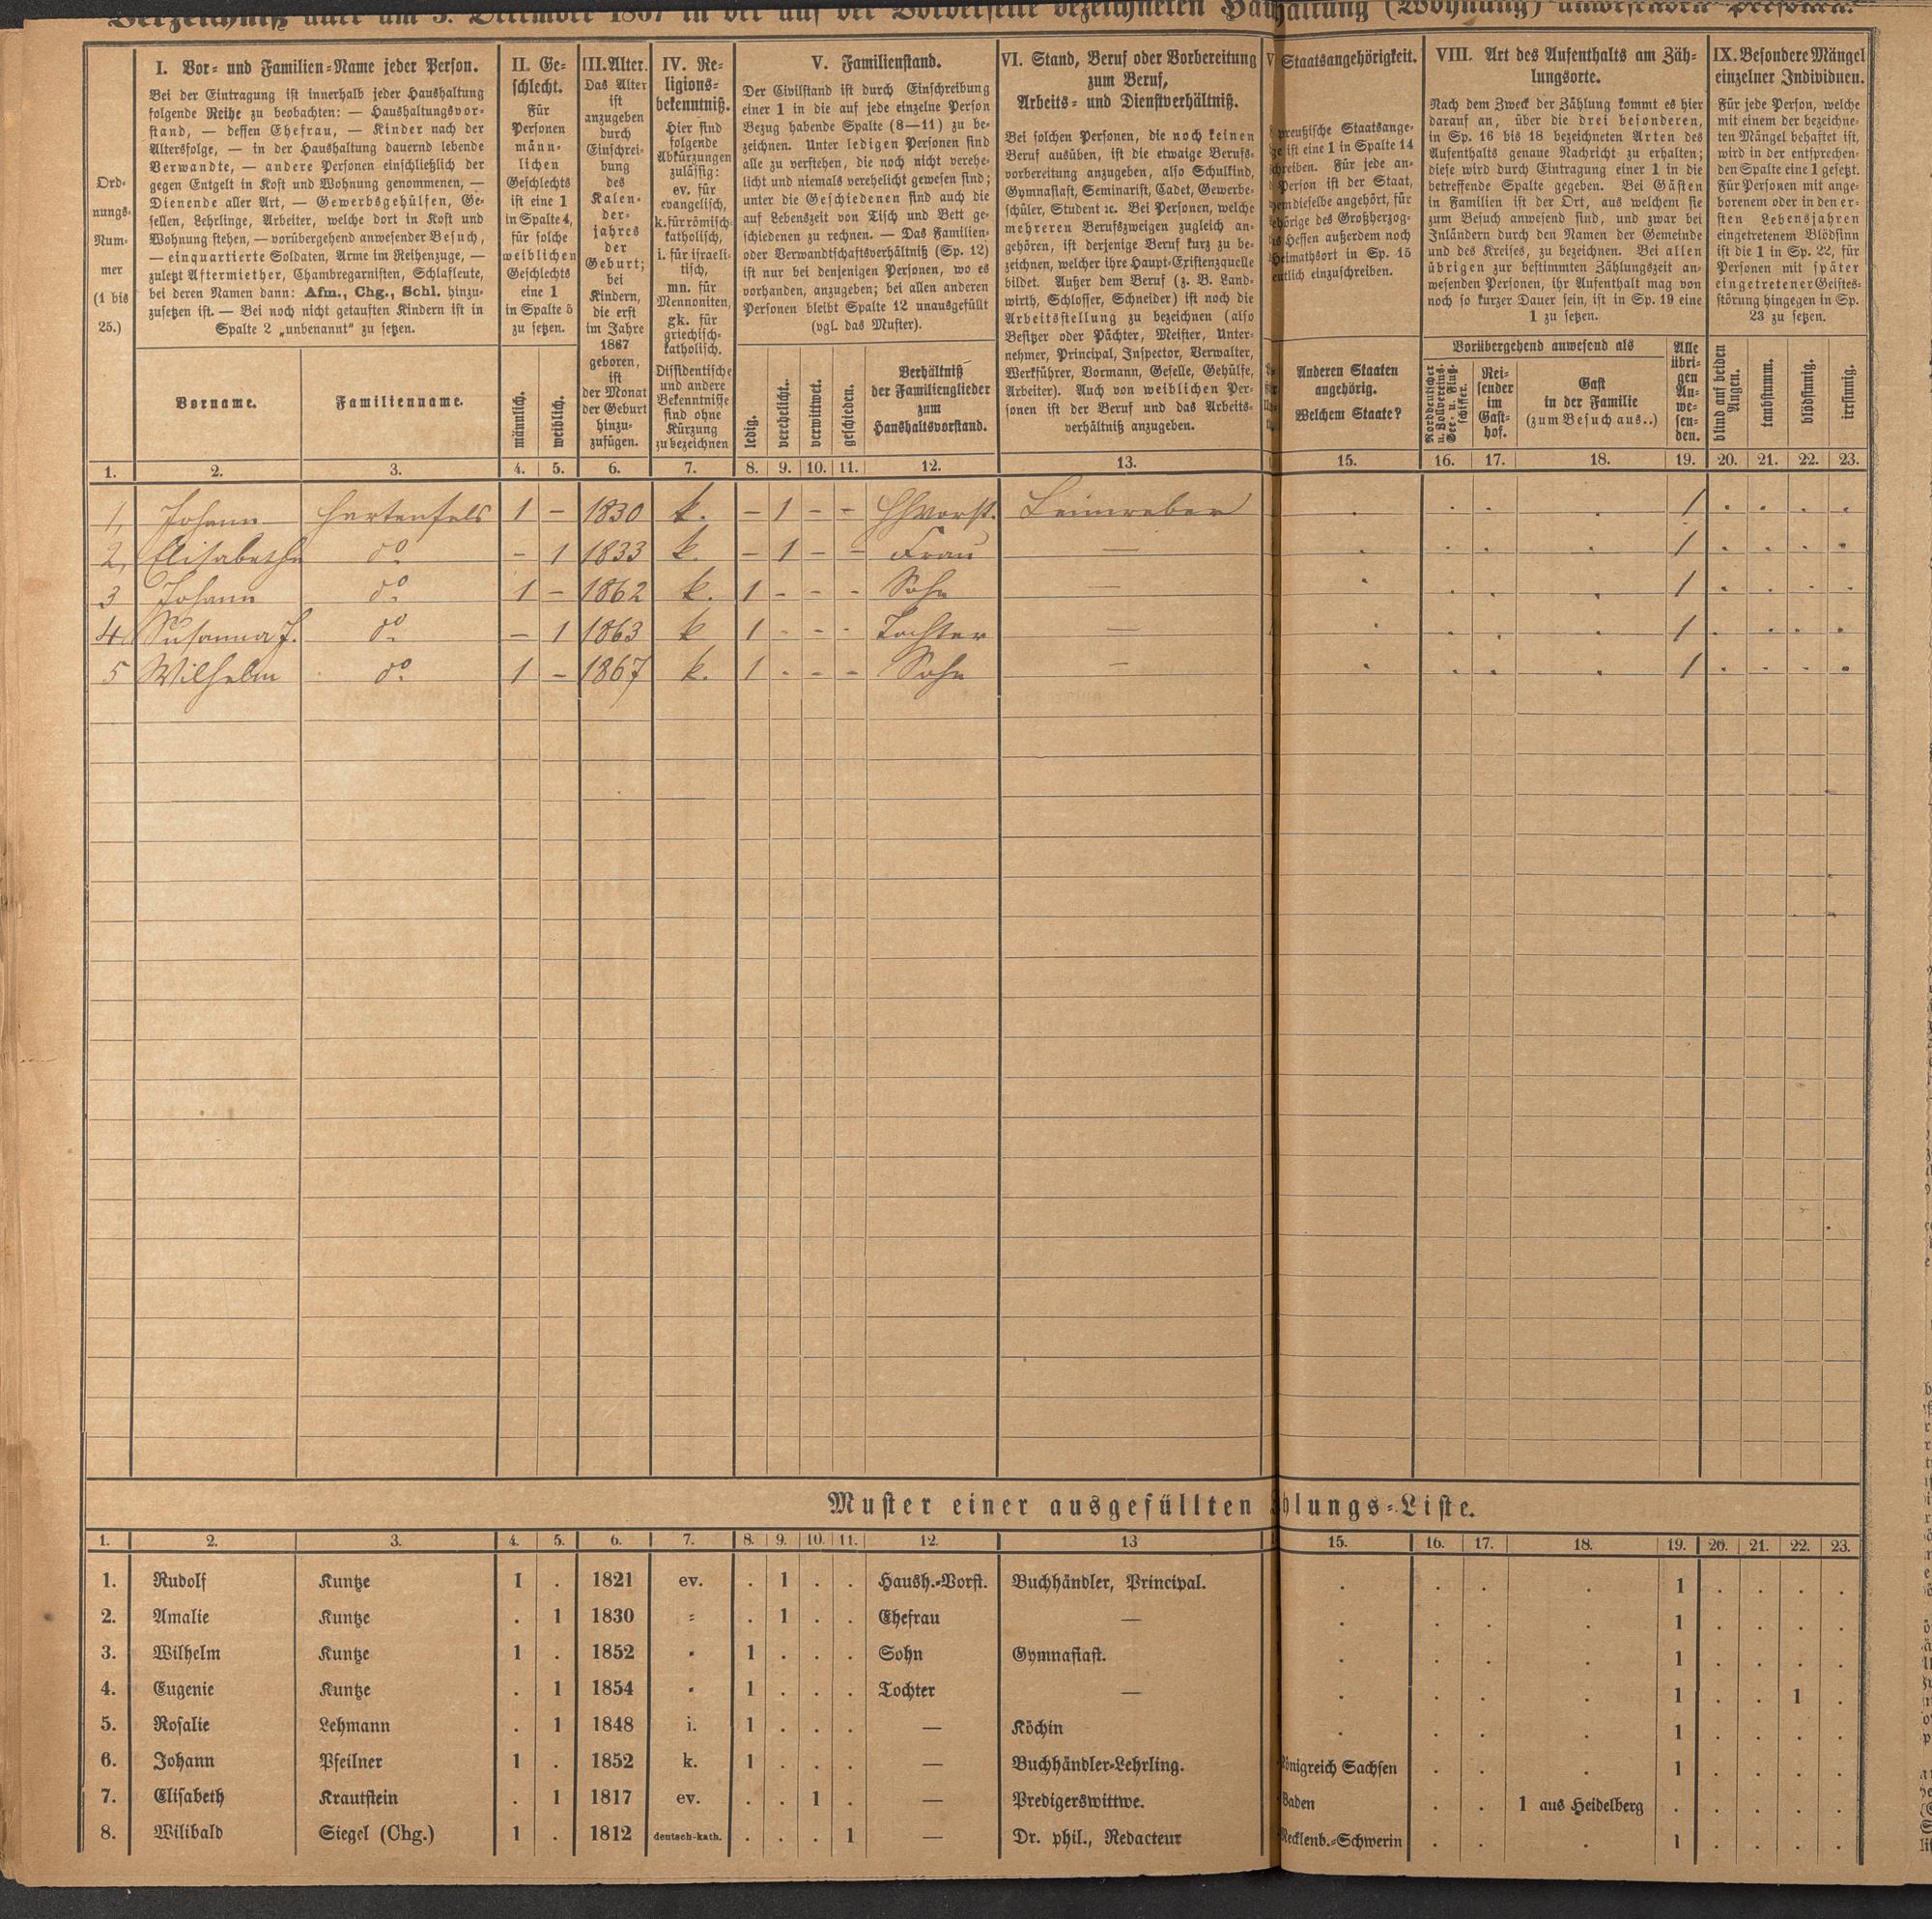 Verzeichniß aller am 3. December 1867 in der auf der Vorderseite bezeichneten Haushaltung (Wohnung) anwesenden Personen.
Ord-
nungs-
Num-
mer
(1 bis
25.)
I. Vor- und Familien-Name jeder Person.
Bei der Eintragung ist innerhalb jeder Haushaltung
folgende Reihe zu beobachten: — Haushaltungsvor-
stand, — dessen Ehefrau, — Kinder nach der
Altersfolge, — in der Haushaltung dauernd lebende
Verwandte, — andere Personen einschließlich der
gegen Entgelt in Kost und Wohnung genommenen, —
Dienende aller Art, — Gewerbsgehülfen, Ge-
sellen, Lehrlinge, Arbeiter, welche dort in Kost und
Wohnung stehen, — vorübergehend anwesender Besuch,
— einquartierte Soldaten, Arme im Reihenzuge, —
zuletzt Aftermiether, Chambregarnisten, Schlafleute,
bei deren Namen dann: Afm., Chg., Schl. hinzu-
zusetzen ist. — Bei noch nicht getauften Kindern ist in
Spalte 2 „unbenannt" zu setzen.
Vorname.
Familienname.
II. Ge-
schlecht.
Für
Personen
männ-
lichen
Geschlechts
ist eine 1
in Spalte 4,
für solche
weiblichen
Geschlechts
eine 1
in Spalte 5
zu setzen.
männlich.
weiblich.
III. Alter.
Das Alter
ist
anzugeben
durch
Einschrei-
bung
des
Kalen-
der-
jahres
der
Geburt;
bei
Kindern,
die erst
im Jahre
1867
geboren,
ist
der Monat
der Geburt
hinzu-
zufügen.
IV. Re-
ligions-
bekenntniß.
Hier sind
folgende
Abkürzungen
zulässig:
ev. für
evangelisch,
k. für römisch-
katholisch,
i. für israeli-
tisch,
mn. für
Mennoniten,
gk. für
griechisch-
katholisch.
Dissidentische
und andere
Bekenntnisse
sind ohne
Kürzung
zu bezeichnen
V. Familienstand.
Der Civilstand ist durch Einschreibung
einer 1 in die auf jede einzelne Person
Bezug habende Spalte (8—11) zu be-
zeichnen. Unter ledigen Personen sind
alle zu verstehen, die noch nicht verehe-
licht und niemals verehelicht gewesen sind;
unter die Geschiedenen sind auch die
auf Lebenszeit von Tisch und Bett ge-
schiedenen zu rechnen. — Das Familien-
oder Verwandtschaftsverhältniß (Sp. 12)
ist nur bei denjenigen Personen, wo es
vorhanden, anzugeben; bei allen anderen
Personen bleibt Spalte 12 unausgefüllt
(vgl. das Muster).
ledig.
verehelicht.
verwittwet.
geschieden.
Verhältniß
der Familienglieder
zum
Haushaltsvorstand.
VI. Stand, Beruf oder Vorbereitung
zum Beruf,
Arbeits- und Dienstverhältniß.
Bei solchen Personen, die noch keinen
Beruf ausüben, ist die etwaige Berufs-
vorbereitung anzugeben, also Schulkind,
Gymnasiast, Seminarist, Cadet, Gewerbe-
schüler, Student ec. Bei Personen, welche
mehreren Berufszweigen zugleich an-
gehören, ist derjenige Beruf kurz zu be-
zeichnen, welcher ihre Haupt-Existenzquelle
bildet. Außer dem Beruf (z. B. Land-
wirth, Schlosser, Schneider) ist noch die
Arbeitsstellung zu bezeichnen (also
Besitzer oder Pächter, Meister, Unter-
nehmer, Principal, Inspector, Verwalter,
Werkführer, Vormann, Geselle, Gehülfe,
Arbeiter). Auch von weiblichen Per-
sonen ist der Beruf und das Arbeits-
verhältniß anzugeben.
Staatsangehörigkeit.
preußische Staatsange-
ist eine 1 in Spalte 14
schreiben. Für jede an-
Person ist der Staat,
dieselbe angehört, für
hörige des Großherzog-
Hessen außerdem noch
Heimathsort in Sp. 15
entlich einzuschreiben.
Anderen Staaten
angehörig.
Welchem Staate?
VIII. Art des Aufenthalts am Zäh-
lungsorte.
Nach dem Zweck der Zählung kommt es hier
darauf an, über die drei besonderen,
in Sp. 16 bis 18 bezeichneten Arten des
Aufenthalts genaue Nachricht zu erhalten;
diese wird durch Eintragung einer 1 in die
betreffende Spalte gegeben. Bei Gästen
in Familien ist der Ort, aus welchem sie
zum Besuch anwesend sind, und zwar bei
Inländern durch den Namen der Gemeinde
und des Kreises, zu bezeichnen. Bei allen
übrigen zur bestimmten Zählungszeit an-
wesenden Personen, ihr Aufenthalt mag von
noch so kurzer Dauer sein, ist in Sp. 19 eine
1 zu setzen.
Vorübergehend anwesend als
Norddeutscher
u. Vollvereins-
See- u. Fluß-
schiffer.
Rei-
sender
im
Gast-
hof.
Gast
in der Familie
(zum Besuch aus..)
Alle
übri-
gen
An-
we-
sen-
den.
IX. Besondere Mängel
einzelner Individuen.
Für jede Person, welche
mit einem der bezeichne-
ten Mängel behaftet ist,
wird in der entsprechen-
den Spalte eine 1 gesetzt.
Für Personen mit ange-
borenem oder in den er-
sten Lebensjahren
eingetretenem Blödsinn
ist die 1 in Sp. 22, für
Personen mit später
eingetretener Geistes-
störung hingegen in Sp.
23 zu setzen.
blind auf beiden
Augen.
taubstumm.
blödsinnig.
irrsinnig.
1. 2. 3. 4. 5. 6. 7. 8. 9. 10. 11. 12. 13. 15. 16. 17. 18. 19. 20. 21. 22. 23.
1, Johann Hartenfels 1 – 1830 k. – 1 – – HHVorst. Leinweber . . . . 1 . . . .
2, Elisabetha do – 1 1833 k. – 1 – – Frau — . . . . 1 . . . .
3 Johann do 1 – 1862 k. 1 - - - Sohn — . . . . 1 . . . .
4. Susanna J. do – 1 1863 k 1 - - - Tochter — . . . . 1 . . . .
5 Wilhelm do 1 – 1867 k. 1 - - - Sohn — . . . . 1 . . . .
Muster einer ausgefüllten hlungs-Liste.
1. 2. 3. 4. 5. 6. 7. 8. 9. 10. 11. 12. 13 15. 16. 17. 18. 19. 20. 21. 22. 23.
1. Rudolf Kuntze 1 . 1821 ev. . 1 . . Haush.-Vorst. Buchhändler, Principal. . . . . 1 . . . .
2. Amalie Kuntze . 1 1830 = . 1 . . Ehefrau — . . . . 1 . . . .
3. Wilhelm Kuntze 1 . 1852 = 1 . . . Sohn Gymnasiast. . . . . 1 . . . .
4. Eugenie Kuntze . 1 1854 = 1 . . . Tochter — . . . . 1 . . 1 .
5. Rosalie Lehmann . 1 1848 i. 1 . . . — Köchin . . . . 1 . . . .
6. Johann Pfeilner 1 . 1852 k. 1 . . . — Buchhändler-Lehrling. önigreich Sachsen . . . 1 . . . .
7. Elisabeth Krautstein . 1 1817 ev. . . 1 . — Predigerswittwe. Baden . . 1 aus Heidelberg . . . . .
8. Wilibald Siegel (Chg.) 1 . 1812 deutsch-kath. . . . 1 — Dr. phil., Redacteur Mecklenb.-Schwerin . . . 1 . . . .